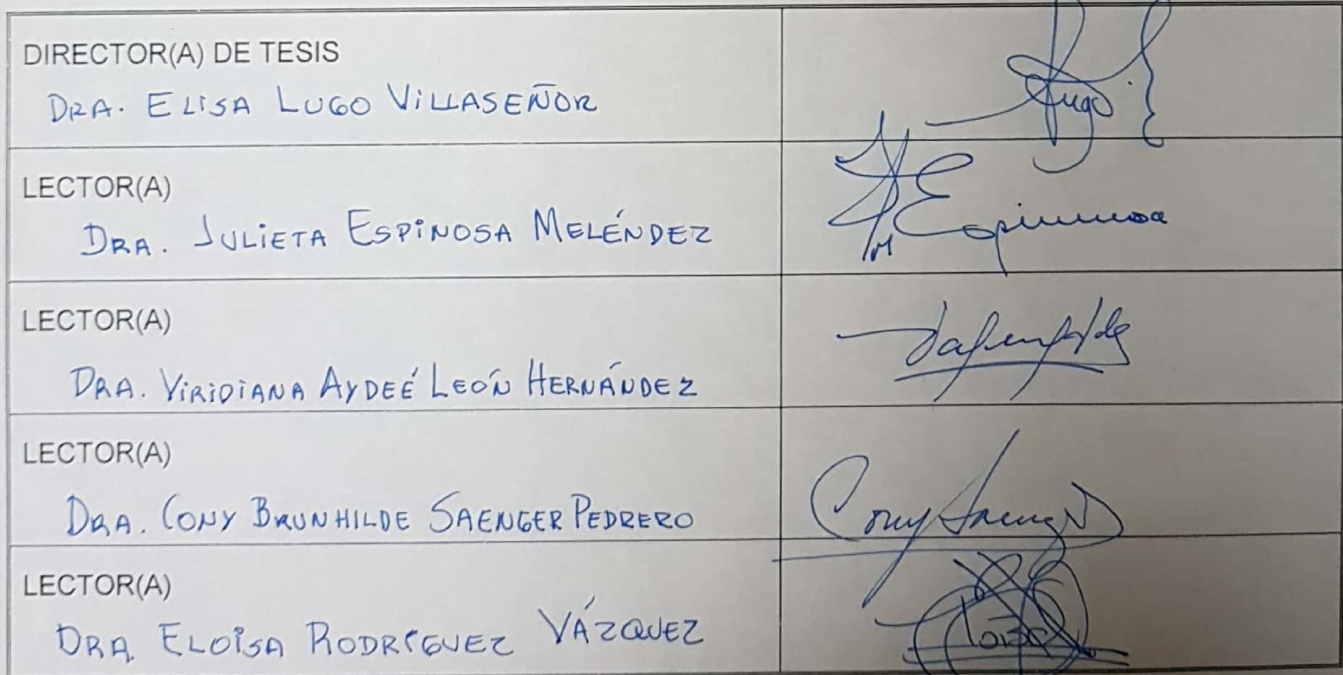 DIRECTOR(A) DE TESIS
DRA. ELISA LUGO VILLASEÑOR
Lugo
LECTOR(A)
DRA. JULIETA ESPINOSA MELÉNDEZ
Espinosa
LECTOR(A)
DRA. VIRIDIANA AYDEÉ LEÓN HERNÁNDEZ
LECTOR(A)
DRA. CONY BRUNHILDE SAENGER PEDRERO
Cony Saenger
LECTOR(A)
DRA ELOÍSA RODRÍGUEZ VÁZQUEZ